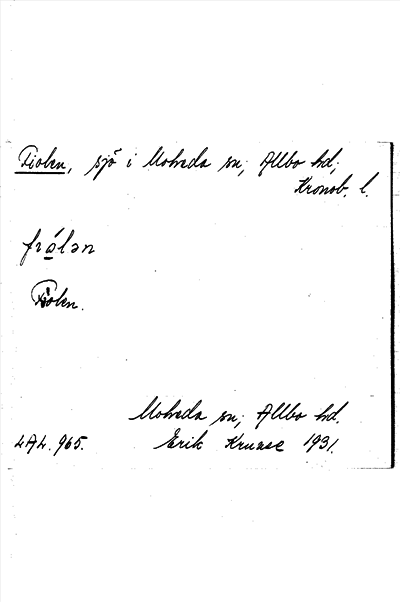 Fiolen, sjö i Moheda sn; Allbo hd;
Kronob. l.
fiólən
Fiolen.
Moheda sn; Allbo hd.
LAL. 965. Erik Kruuse 1931.